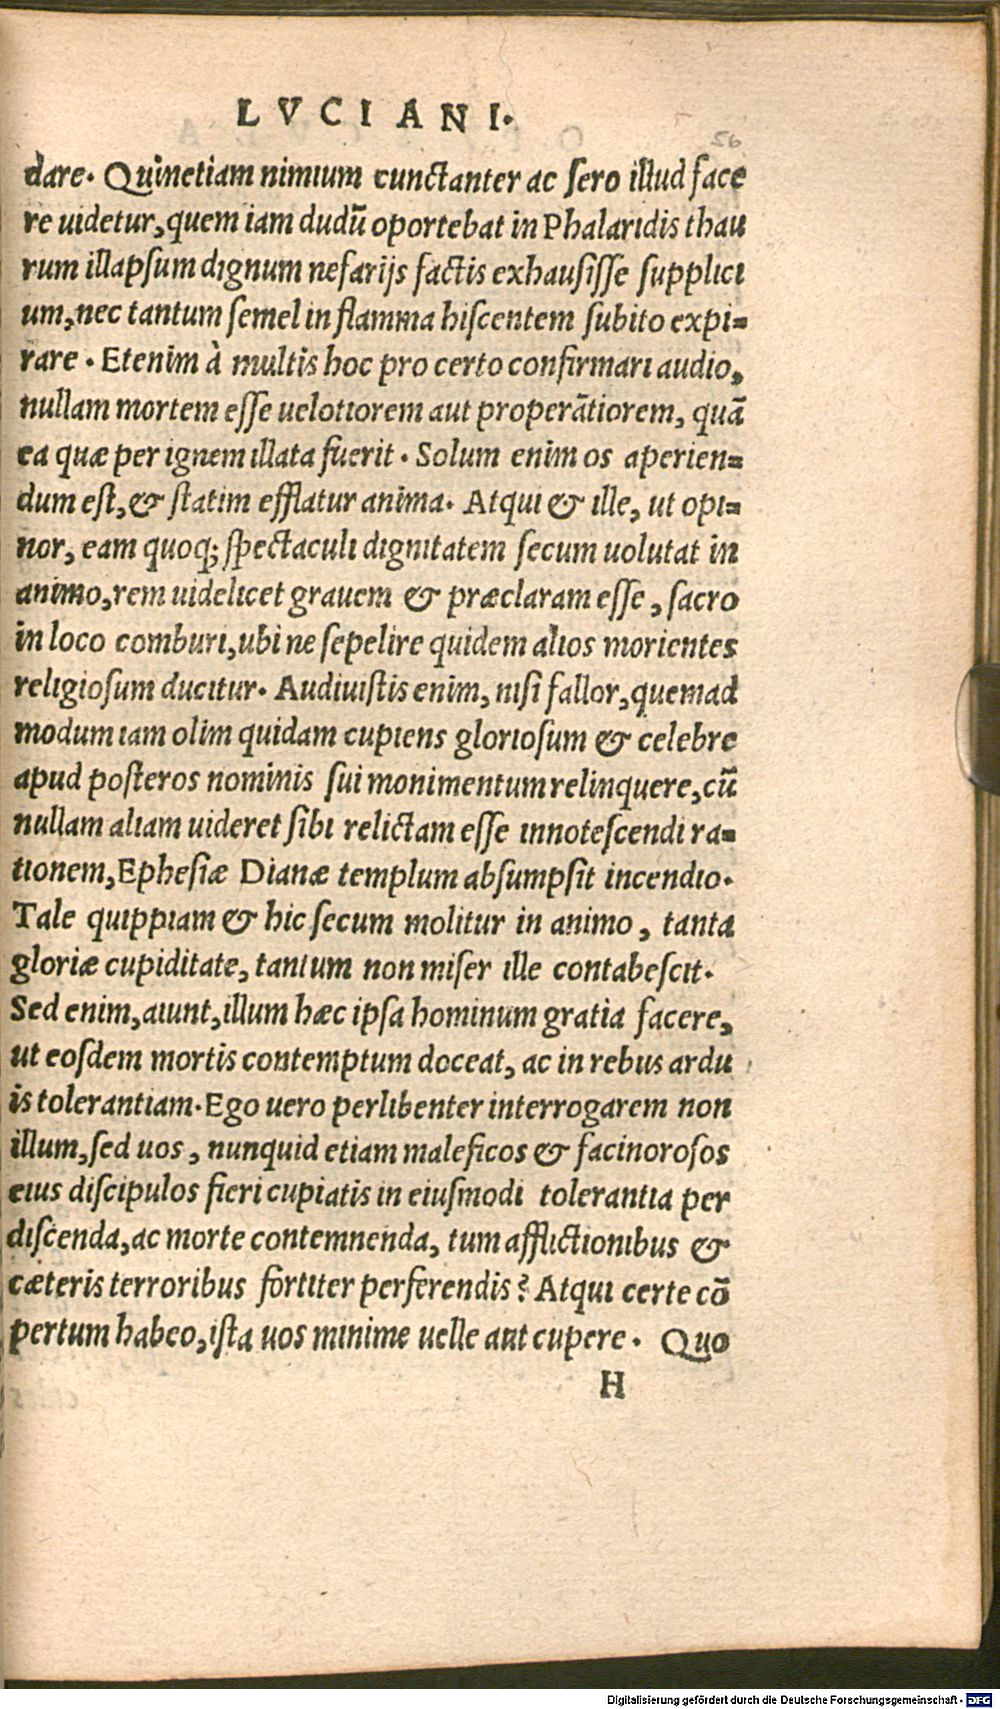 LVCIANI.
56
dare. Quinetiam nimium cunctanter ac sero illud face
re uidetur, quem iam dudũ oportebat in Phalaridis thau
rum illapsum dignum nefarijs factis exhausisse supplici
um, nec tantum semel in flamma hiscentem subito expi=
rare. Etenim à multis hoc pro certo confirmari audio,
nullam mortem esse uelotiorem aut properãtiorem, quã
ea quæ per ignem illata fuerit. Solum enim os aperien=
dum est, & statim efflatur anima. Atqui & ille, ut opi=
nor, eam quoq; spectaculi dignitatem secum uolutat in
animo, rem uidelicet grauem & præclaram esse, sacro
in loco comburi, ubi ne sepelire quidem alios morientes
religiosum ducitur. Audiuistis enim, nisi fallor, quemad
modum iam olim quidam cupiens gloriosum & celebre
apud posteros nominis sui monimentum relinquere, cũ
nullam aliam uideret sibi relictam esse innotescendi ra=
tionem, Ephesiæ Dianæ templum absumpsit incendio.
Tale quippiam & hic secum molitur in animo, tanta
gloriæ cupiditate, tantum non miser ille contabescit.
Sed enim, aiunt, illum hæc ipsa hominum gratia facere,
ut eosdem mortis contemptum doceat, ac in rebus ardu
is tolerantiam. Ego uero perlibenter interrogarem non
illum, sed uos, nunquid etiam maleficos & facinorosos
eius discipulos fieri cupiatis in eiusmodi tolerantia per
discenda, ac morte contemnenda, tum afflictionibus &
cæteris terroribus fortiter perferendis? Atqui certe cõ
pertum habeo, ista uos minime uelle aut cupere. Quo
H
Digitalisierung gefördert durch die Deutsche Forschungsgemeinschaft - DFG